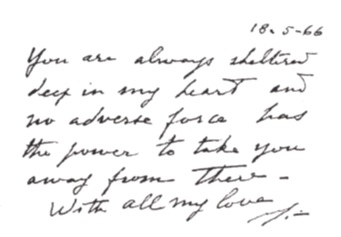 18.5-66
You are always sheltered
deep in my heart and
no adverse force has
the power to take you
away from there -
With all my love